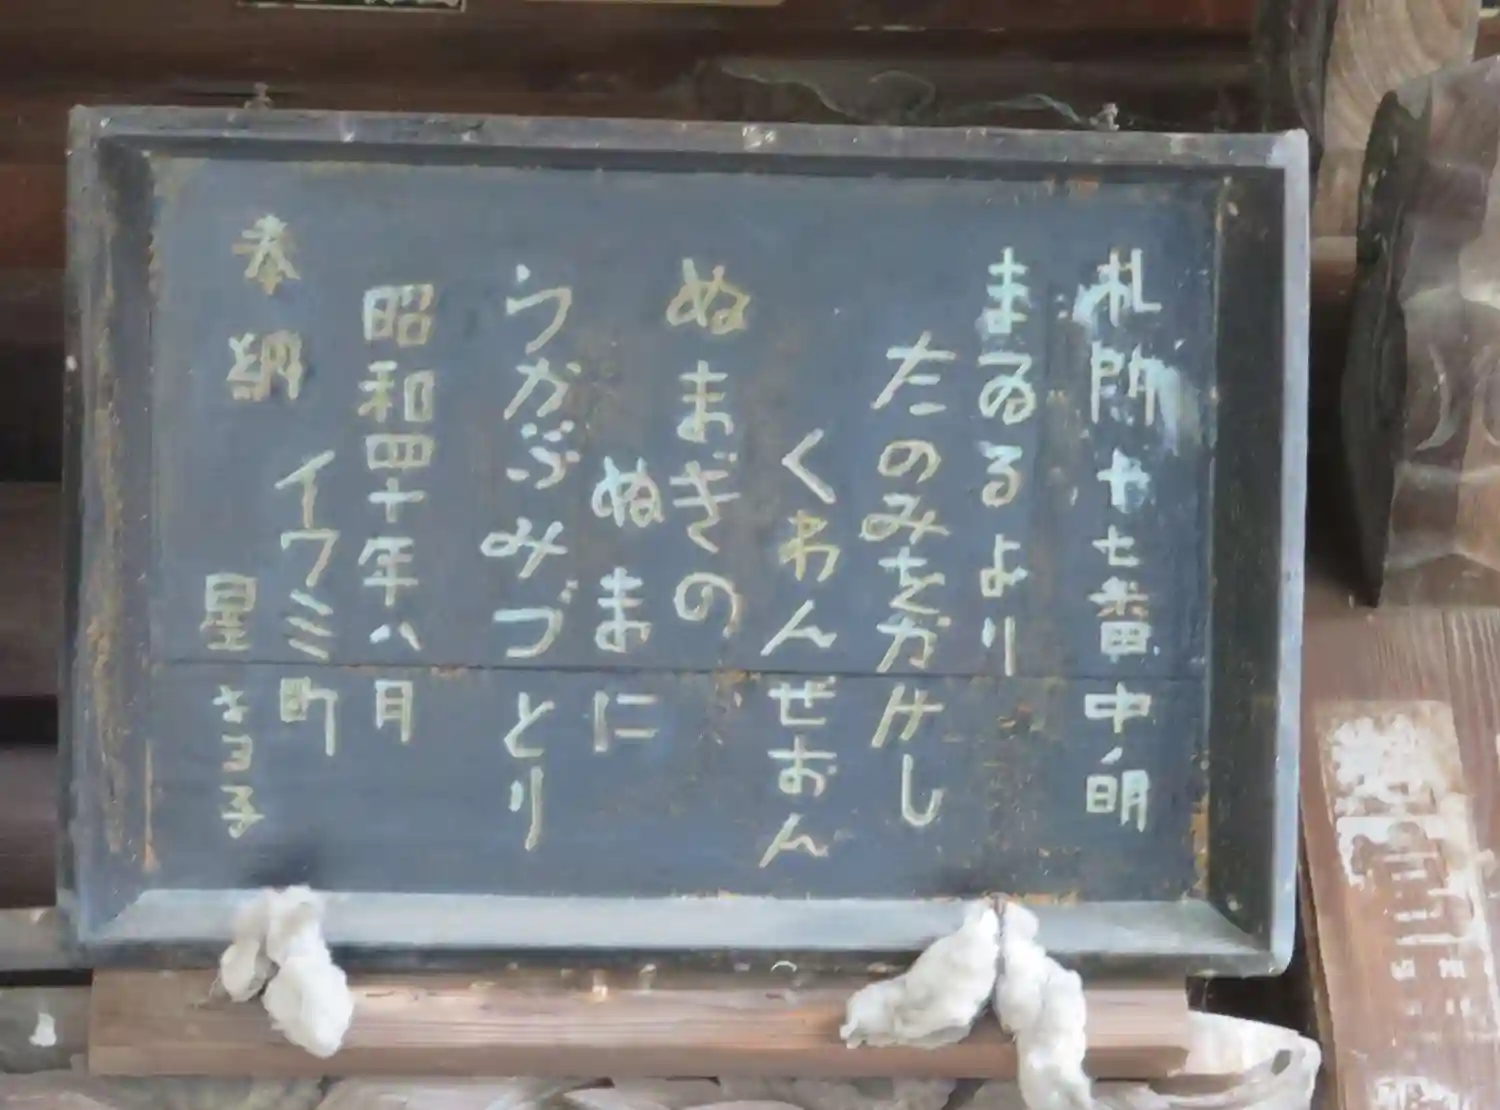 札所廿七番中ノ明
まゐるより
たのみをかけし
くわんぜおん
ぬまぎの
ぬまに
うかぶみづとり
昭和四十年八月
イワミ町
奉納
星さヨ子